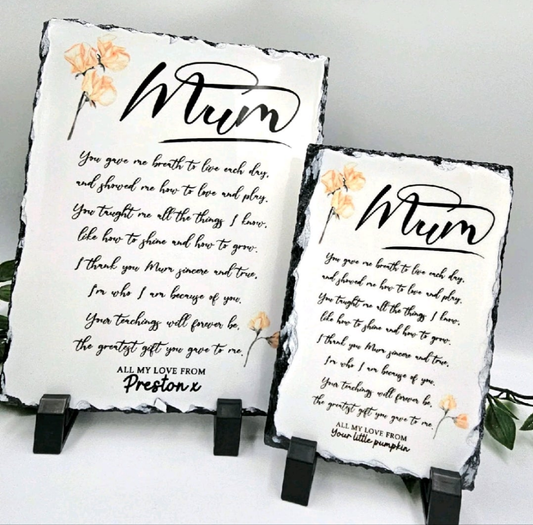 Mum
You gave me breath to live each day,
and showed me how to love and play.
You taught me all the things I know,
like how to shine and how to grow.
I thank you Mum sincere and true,
I'm who I am because of you.
Your teachings will forever be,
the greatest gift you gave to me.
ALL MY LOVE FROM
Preston x
Mum
You gave me breath to live each day,
and showed me how to love and play.
You taught me all the things I know,
like how to shine and how to grow.
I thank you Mum sincere and true,
I'm who I am because of you.
Your teachings will forever be,
the greatest gift you gave to me.
ALL MY LOVE FROM
Your little pumpkin